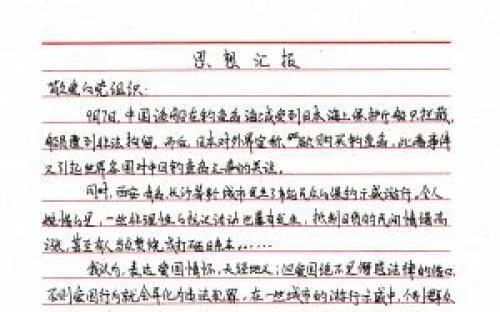 思想汇报
敬爱的党组织：
9月7日，中国渔船在钓鱼岛海域受到日本海上保护厅船只拦截，
船员遭到非法拘留。而后，日本对外界宣称，欲购买钓鱼岛，此番事件
又引起世界各国对中国钓鱼岛之事的关注。
同时，西安、青岛、长沙等城市发生了市民反日保钓示威游行。令人
遗憾的是，一些非理性与抗议活动也屡有发生，抵制日货的民间情绪高
涨，甚至有人当众焚烧或打砸日系车……
我认为，表达爱国情怀，天经地义；但爱国绝不是僭越法律的借口，
不则爱国行为就会异化为违法犯罪。在一些城市的游行示威中，个别群众